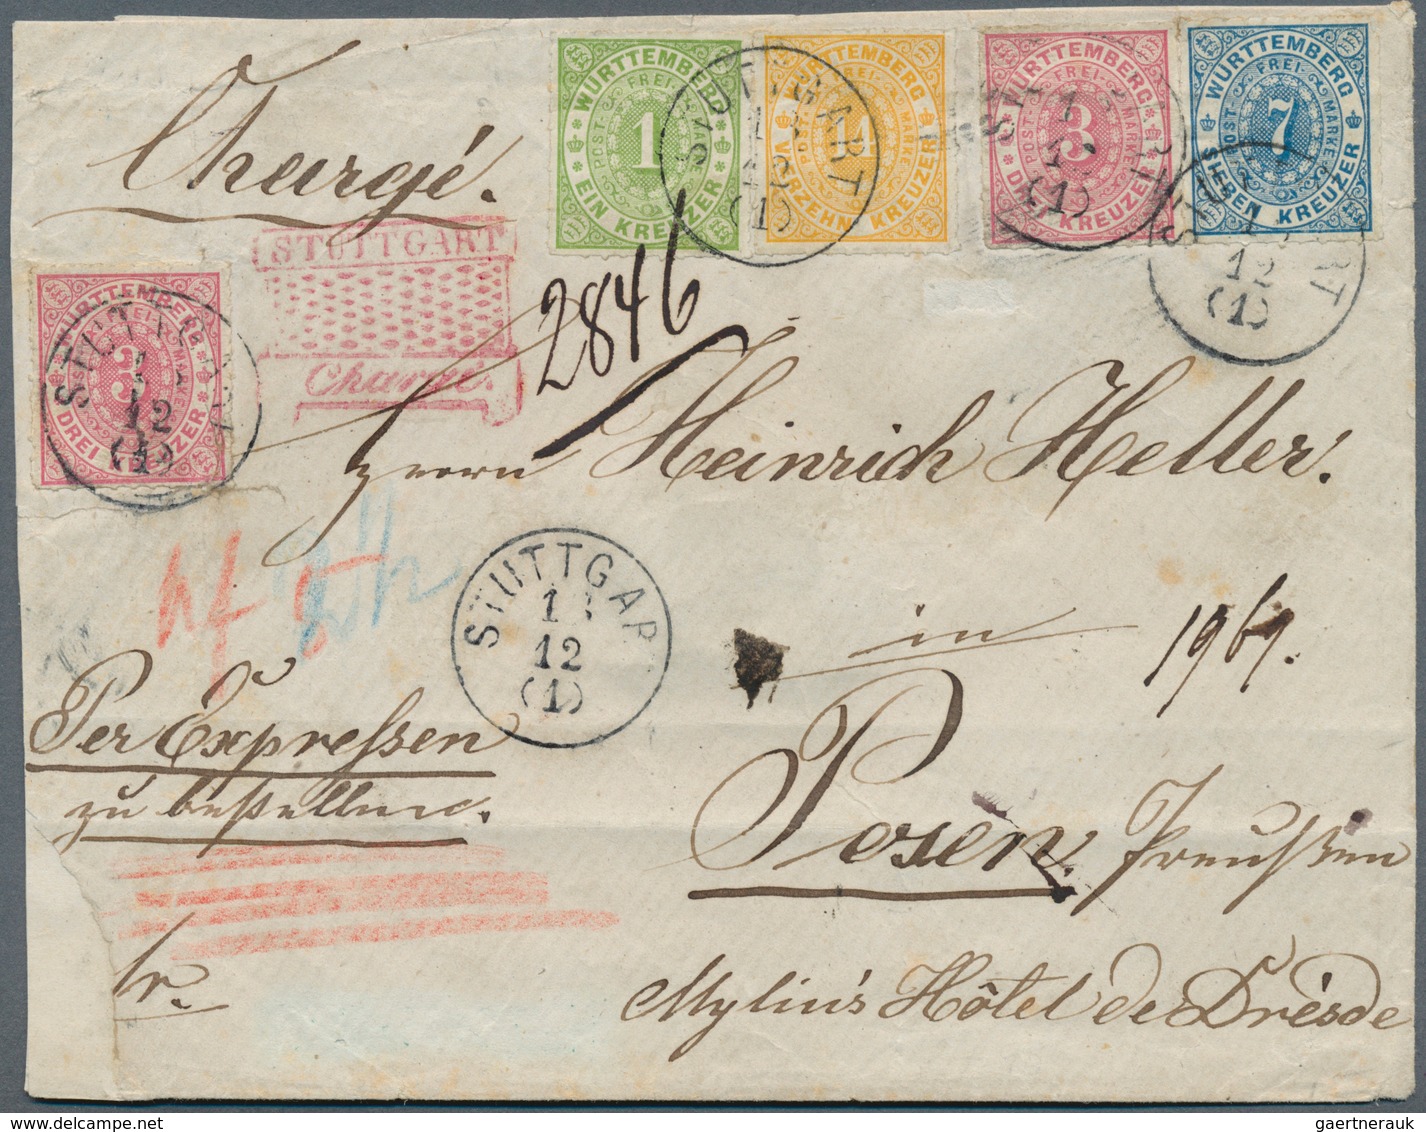 Chargé.
WÜRTTEMBERG
FREI-
POST- MARKE
1
EIN KREUZER
WÜRTTEMBERG
FREI-
POST- MARKE
14
VIERZEHN KREUZER
WÜRTTEMBERG
FREI-
POST- MARKE
3
DREI KREUZER
WÜRTTEMBERG
FREI-
POST- MARKE
7
SIEBEN KREUZER
STUTTGART
12
(1)
STUTTGART
(1)
STUTTGART
12
(1)
STUTTGART
Chargé.
2846
WÜRTTEMBERG
FREI-
POST- MARKE
3
DREI KREUZER
STUTTGART
12
(1)
Herrn Heinrich Heller.
STUTTGAR
12
(1)
in
1969.
Per Expressen
zu bestellen.
Posen, Preußen
fr.
Mylius's Hôtel de Drésde
gaertnerauk